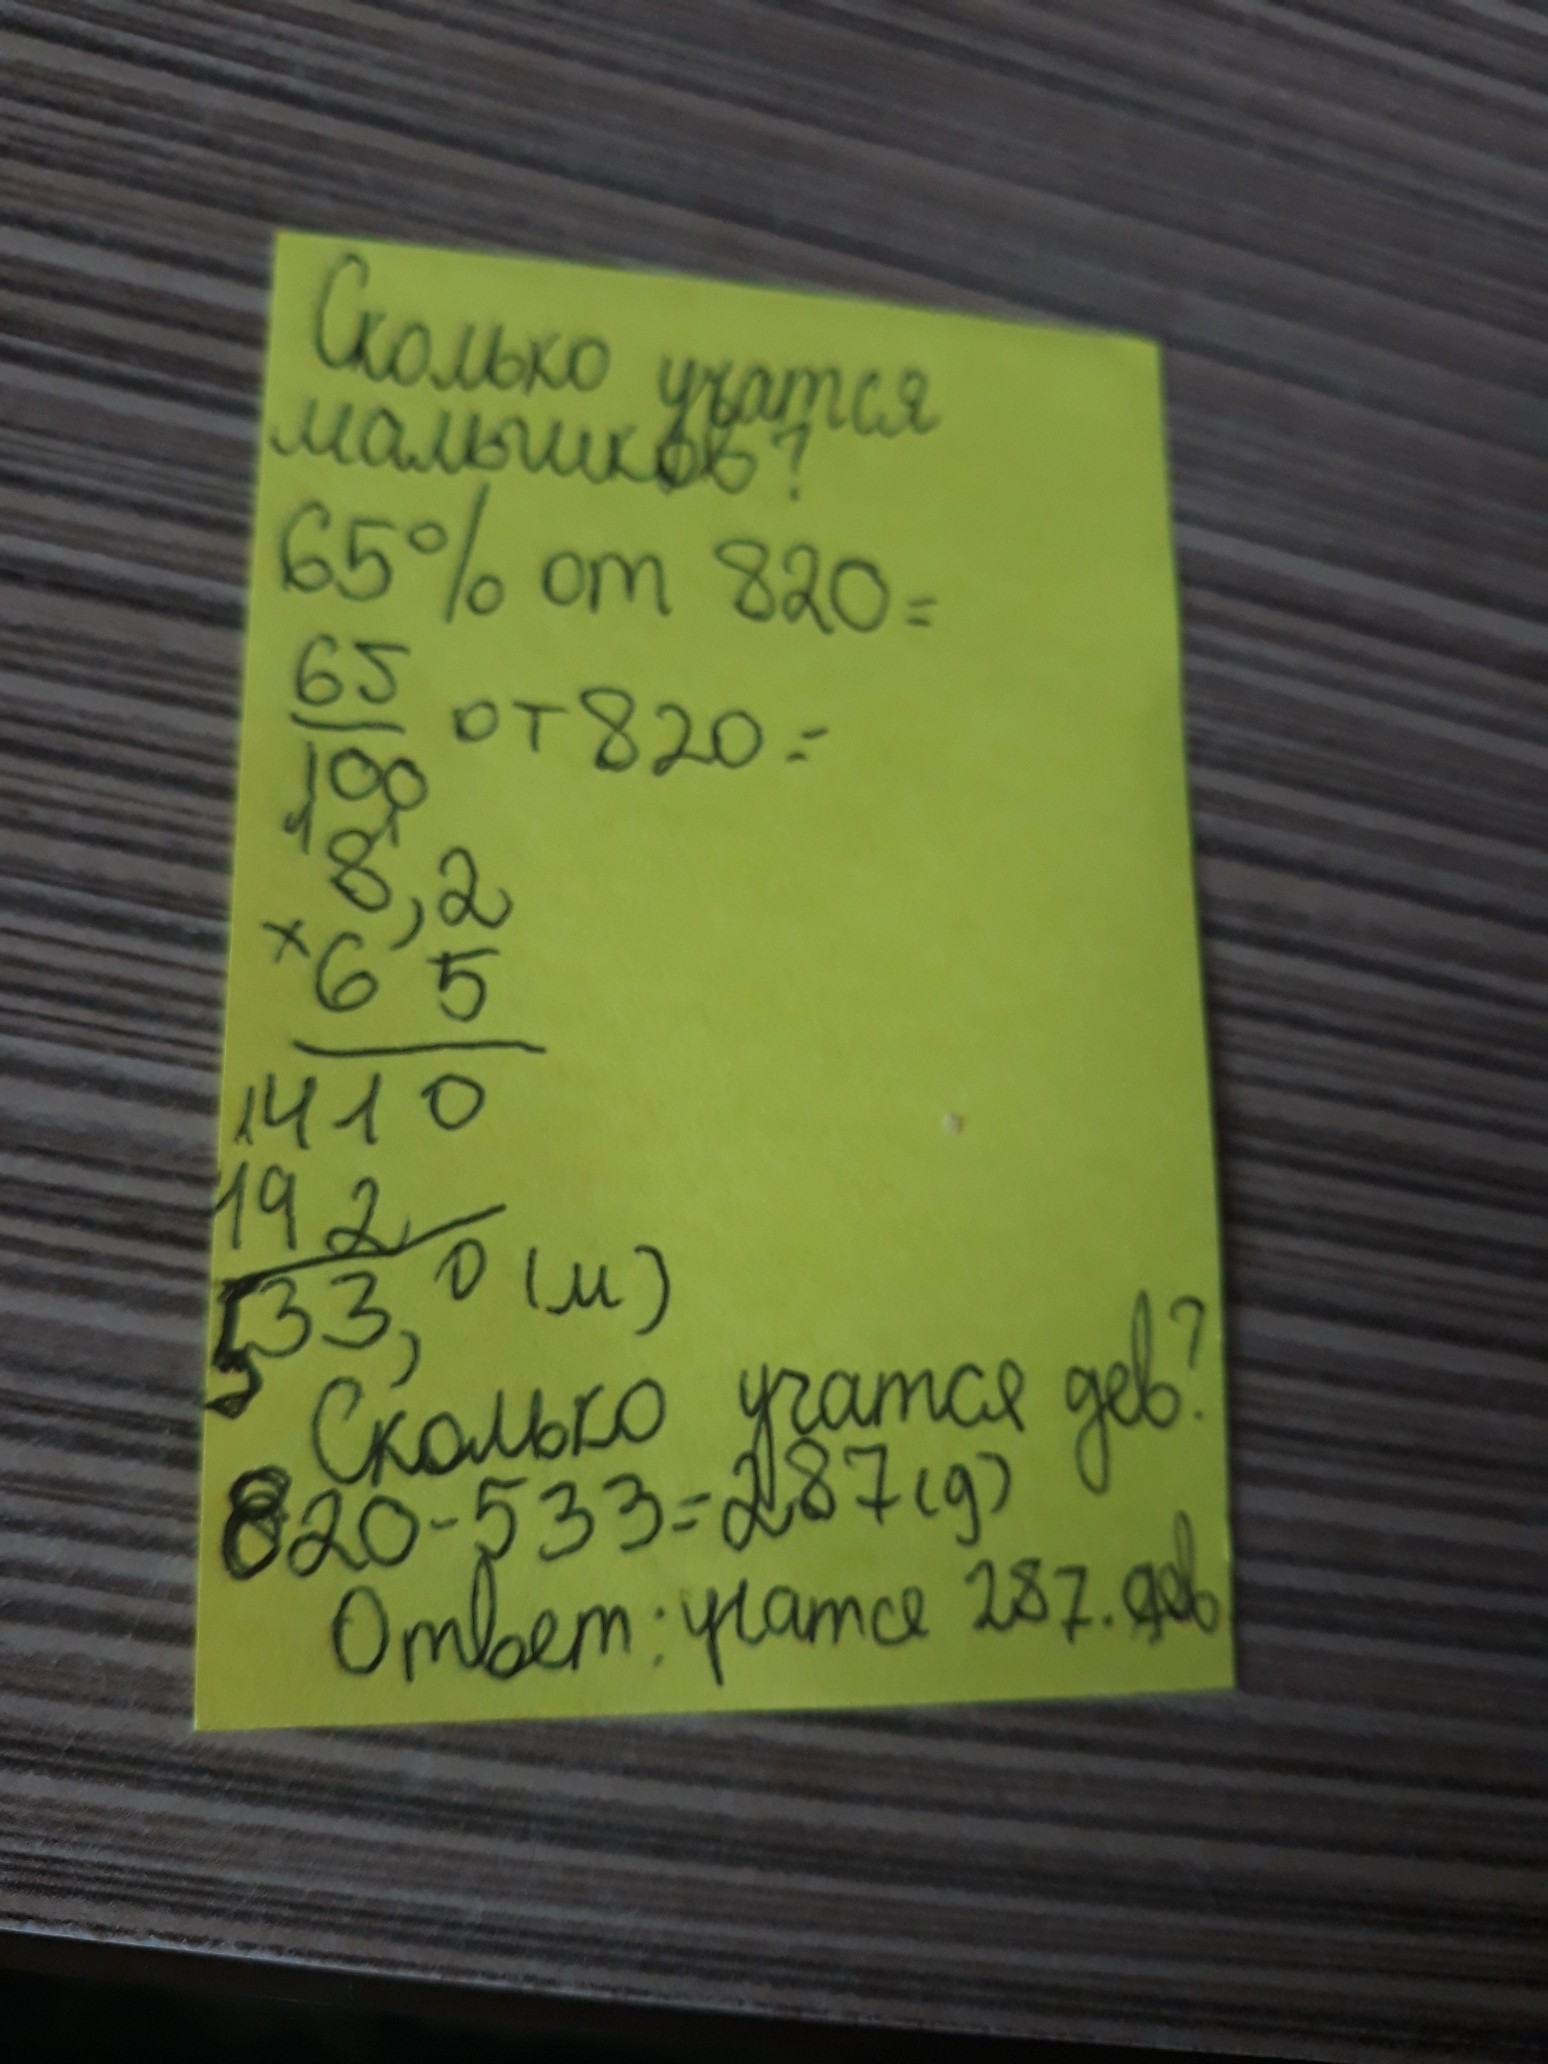 Сколько учатся
малышков?
65% от 820=
65
100 от 820=
1 1
8,2
×6 5
1410
492
533,0 (м)
Сколько учатся дев?
820-533=287(д)
Ответ: учатся 287. дев